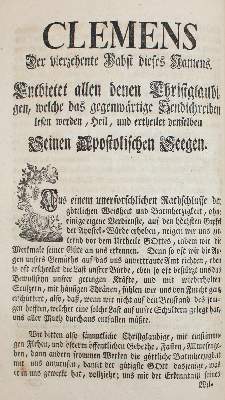 CLEMENS
Der vierzehente Pabst dieses Namens,
Entbietet allen denen Christglaubi-
gen, welche das gegenwärtige Sendschreiben
lesen werden, Heil, und ertheilet denselben
Seinen Apostolischen Seegen.
Aus einem unerforschlichen Rathschlusse der
göttlichen Weisheit und Barmherzigkeit, ohne
einige eigene Verdienste, auf den höchsten Gipfel
der Apostel-Würde erhoben, neigen wir uns zit-
ternd vor dem Urtheile GOttes, indem wir die
Merkmale seiner Güte an uns erkennen. Denn so oft wir die Au-
gen unsers Gemüths auf das uns anvertraute Amt richten, eben
so oft erschrecket die Last unserer Würde, eben so oft
Bewustseyn unserer geringen Kräfte, und mit wiederholten
Seufzern, mit häufigen Thränen, fühlen wir uns von Furcht ganz
erschüttert, also, daß, wenn wir nicht auf den Beystand des jeni-
gen hoffeten, welcher eine solche Last auf unsere Schultern gelegt hat,
uns aller Muth durchaus entfallen müßte.
Wir bitten also sämmtliche Christglaubige, mit einstimmi-
gen Flehen, und öfterm öffentlichen Gebethe, Fasten, Allmosenge-
ben, dann andern frommen Werken die göttliche Barmherzigkeit
mit uns anzurufen, damit der gütigste GOtt dasjenige, was
er in uns gewirkt hat, vollziehe; uns mit der Erkenntniß seines
Wil-